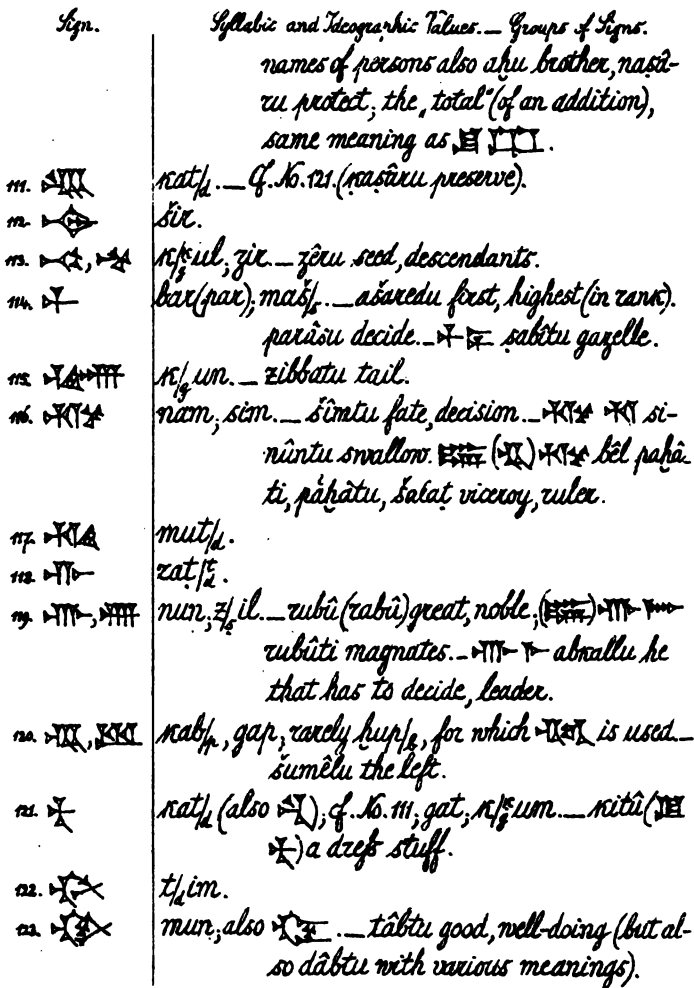 Sign. Syllabic and Ideographic Values. — Groups of Signs.
names of persons also aḫu brother, naṣâ-
ru protect; the „total" (of an addition),
same meaning as
111. kat/d. — Cf. No. 121. (kaṣâru preserve).
112. šir.
113. , ul; zir. — zêru seed, descendants.
114. bar (par); maš/s. — ašaredu first, highest (in rank).
parâsu decide. — ṣabîtu gazelle.
115. k/g un. — zibbatu tail.
116. nam; sim. — šîmtu fate, decision. — si-
nûntu swallow. ( ) bêl paḫâ-
ti, pâḫâtu, šalaṭ viceroy, ruler.
117. mut/d.
118. raṭ/t/d.
119. , nun; z/ṣ il. — rubû (rabû) great, noble; ( )
rubûti magnates. — abkallu he
that has to decide, leader.
120. , kab/p, gap; rarely ḫup/b, for which is used. —
šumêlu the left.
121. kat/d (also ), cf. No. 111; gat; um. — kitû (
) a dress stuff.
122. t/d im.
123. mun; also . — ṭâbtu good, well-doing (but al-
so dâbtu with various meanings).